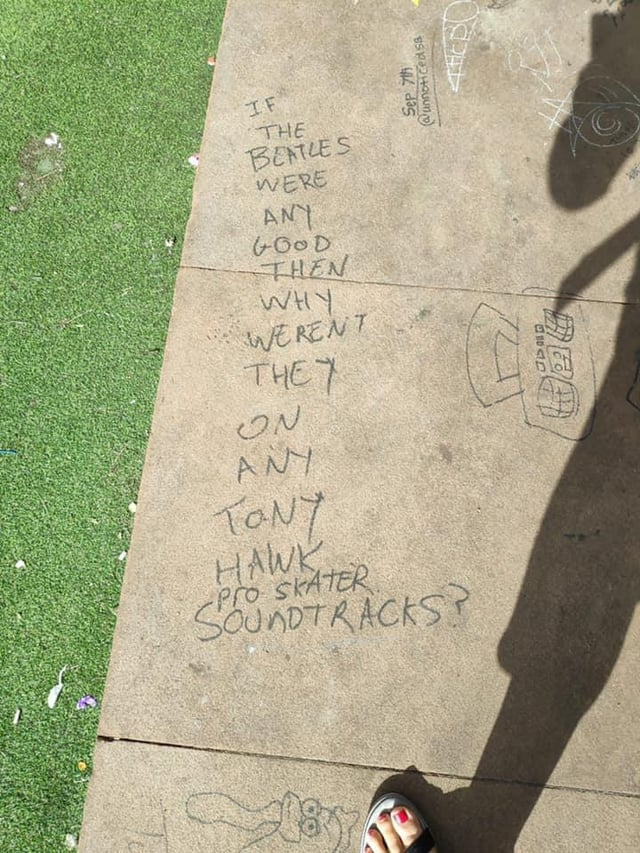 IF
THE
BEATLES
WERE
ANY
GOOD
THEN
WHY
WEREN'T
THEY
ON
ANY
TONY
HAWK
Pro SKATER
SOUNDTRACKS?
Sep 7th
@unnoticedsb